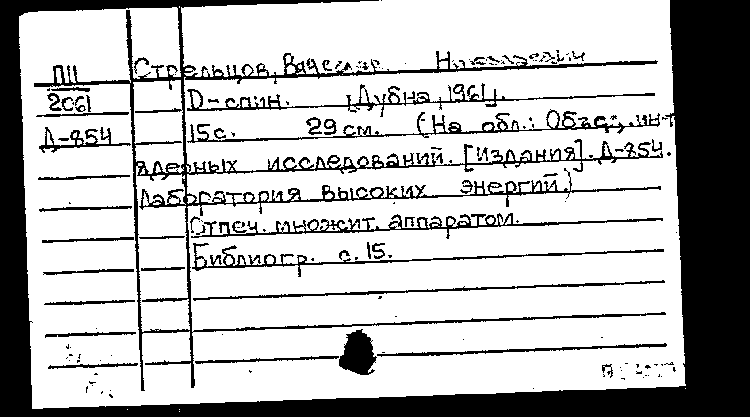 П11 Стрельцов, Вячеслав Николаевич
2061 D-спин. [Дубна, 1961].
Д-854 15 с. 29 см. (На обл.: Объед. ин-т
ядерных исследований. [Издания]. Д-854.
Лаборатория высоких энергий.)
Отпеч. множит. аппаратом.
Библиогр. с. 15.